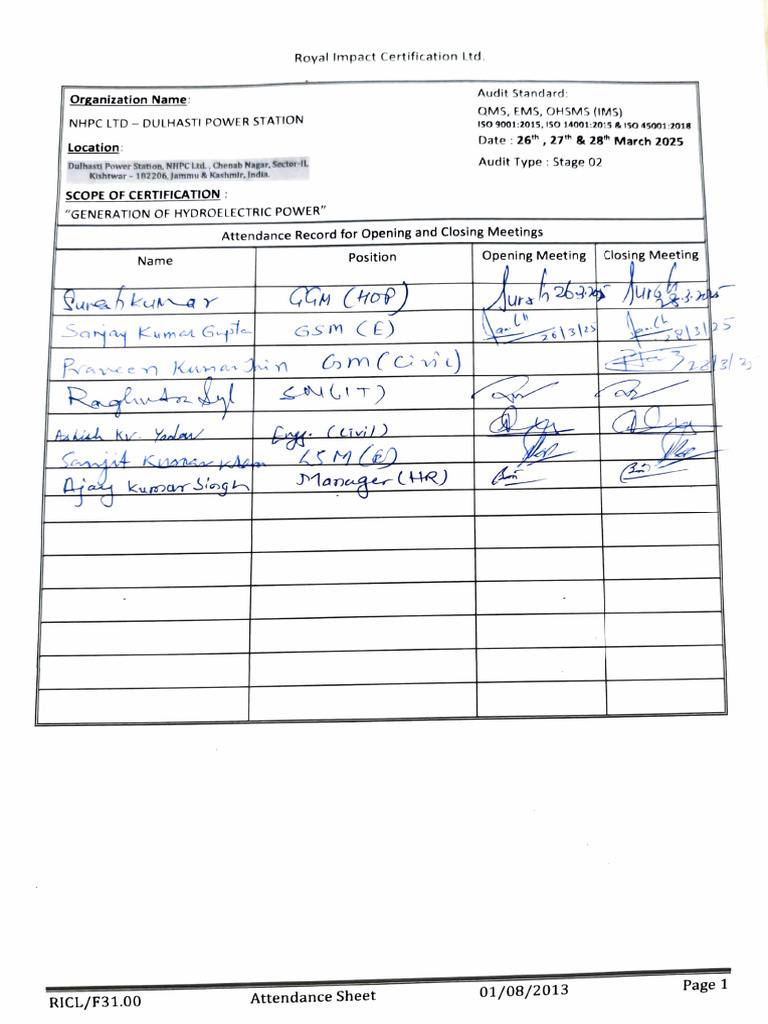 Royal Impact Certification Ltd.
Organization Name:
NHPC LTD – DULHASTI POWER STATION
Location:
Dulhasti Power Station, NHPC Ltd. , Chenab Nagar, Sector-II,
Kishtwar – 182206, Jammu & Kashmir, India.
SCOPE OF CERTIFICATION :
"GENERATION OF HYDROELECTRIC POWER"
Audit Standard:
QMS, EMS, OHSMS (IMS)
ISO 9001:2015, ISO 14001:2015 & ISO 45001:2018
Date : 26th , 27th & 28th March 2025
Audit Type : Stage 02
Attendance Record for Opening and Closing Meetings
Name Position Opening Meeting Closing Meeting
Suresh Kumar GGM (HOP) Suresh 26.3.2025 Suresh 28.3.2025
Sanjay Kumar Gupta GSM (E) 26/3/25 28/3/25
Praveen Kumar Jain GM (Civil) 28/3/25
SM (IT)
Ashish Kr. Yadav Engg. (Civil)
Sanjit Kumar (E)
Ajay Kumar Singh Manager (HR)
RICL/F31.00 Attendance Sheet 01/08/2013 Page 1